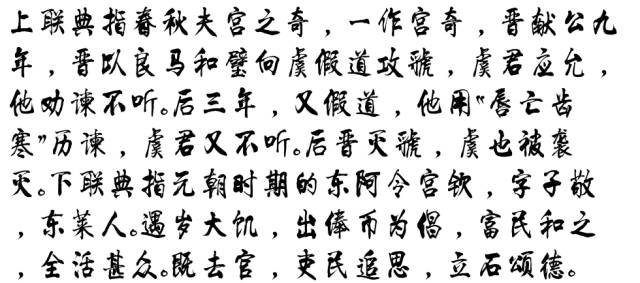 上联典指春秋夫宫之奇，一作宫奇，晋献公九
年，晋以良马和璧向虞假道攻虢，虞君应允，
他劝谏不听。后三年，又假道，他用“唇亡齿
寒”历谏，虞君又不听。后晋灭虢，虞也被袭
灭。下联典指元朝时期的东阿令宫钦，字子敬
，东莱人。遇岁大饥，出俸币为倡，富民和之
，全活甚众。既去官，吏民追思，立石颂德。